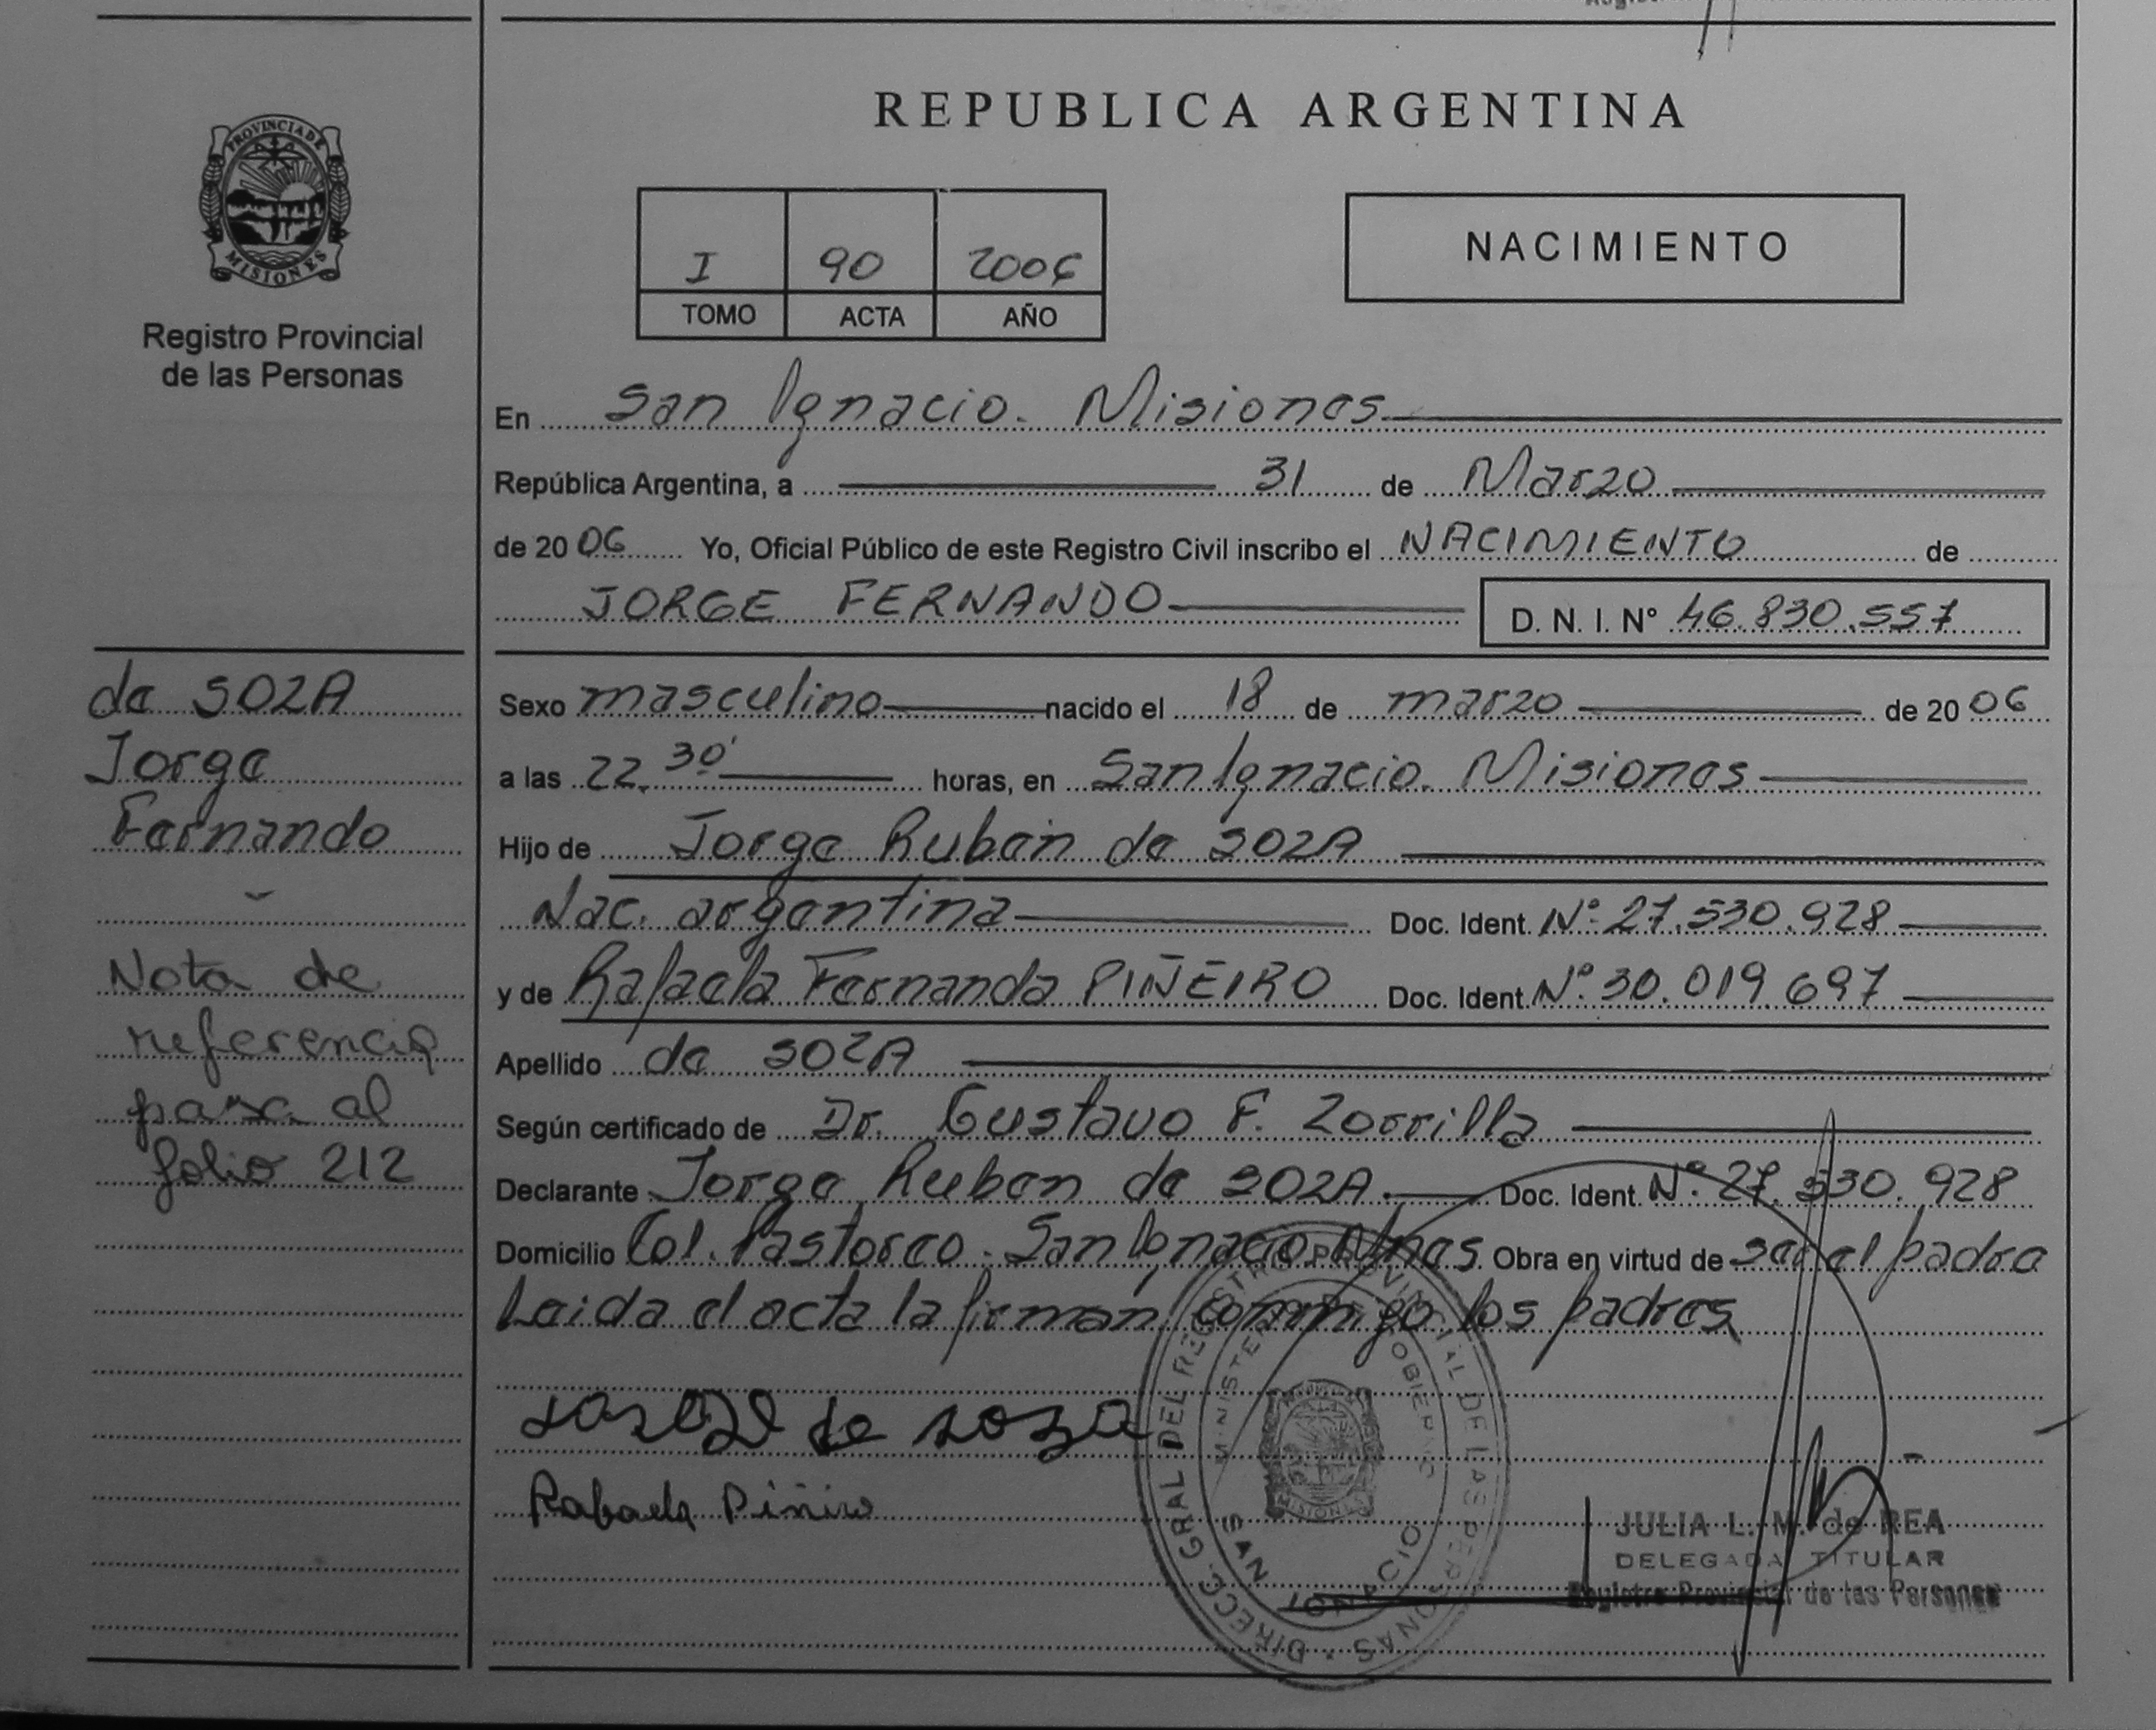 REPUBLICA ARGENTINA
PROVINCIA DE
MISIONES
Registro Provincial
de las Personas
I 90 2006
TOMO ACTA AÑO
NACIMIENTO
En San Ignacio. Misiones
República Argentina, a 31 de Marzo
de 20 06 Yo, Oficial Público de este Registro Civil inscribo el NACIMIENTO de
JORGE FERNANDO D. N. I. Nº 46.830.557
de SOZA
Jorge
Fernando
Nota de
referencia
pasa al
folio 212
Sexo masculino nacido el 18 de marzo de 20 06
a las 22.30' horas, en San Ignacio. Misiones
Hijo de Jorge Ruben de SOZA
Nac. argentina Doc. Ident. Nº 27.530.928
y de Rafaela Fernanda PIÑEIRO Doc. Ident. Nº 30.019.697
Apellido de SOZA
Según certificado de Dr. Gustavo F. Zorrilla
Declarante Jorge Ruben de SOZA. Doc. Ident. Nº 27.530.928
Domicilio Col. Pastoreo. San Ignacio Mnes Obra en virtud de ser el padre
Leida el acta la firman conmigo los padres
Jorge de soza
Rafaela Piñiro
DIRECC. GRAL DEL REGISTRO PROVINCIAL DE LAS PERSONAS
MINISTERIO DE GOBIERNO
MISIONES
SAN IGNACIO
JULIA L. M. de REA
DELEGADA TITULAR
Registro Provincial de las Personas